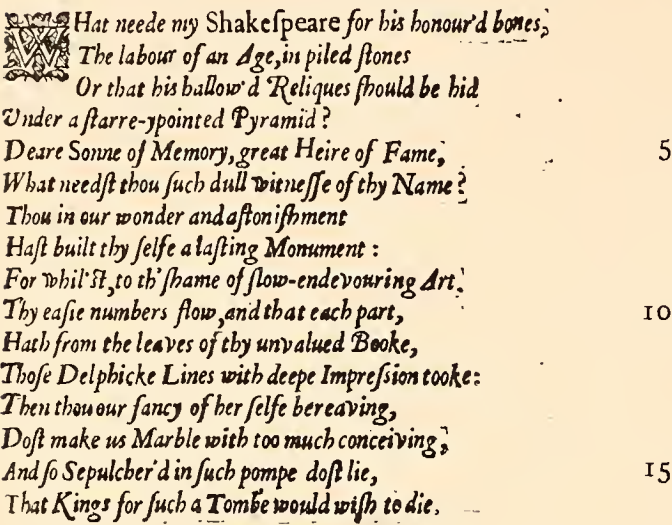 WHat neede my Shakeſpeare for his honour'd bones,
The labour of an Age, in piled ſtones
Or that his hallow'd Reliques ſhould be hid
Vnder a ſtarre-ypointed Pyramid?
Deare Sonne of Memory, great Heire of Fame, 5
What needſt thou ſuch dull witneſſe of thy Name?
Thou in our wonder and aſtoniſhment
Haſt built thy ſelfe a laſting Monument:
For whil'ſt, to th' ſhame of ſlow-endevouring Art,
Thy eaſie numbers flow, and that each part, 10
Hath from the leaves of thy unvalued Booke,
Thoſe Delphicke Lines with deepe Impreſsion tooke:
Then thou our fancy of her ſelfe bereaving,
Doſt make us Marble with too much conceiving,
And ſo Sepulcher'd in ſuch pompe doſt lie, 15
That Kings for ſuch a Tombe would wiſh to die.